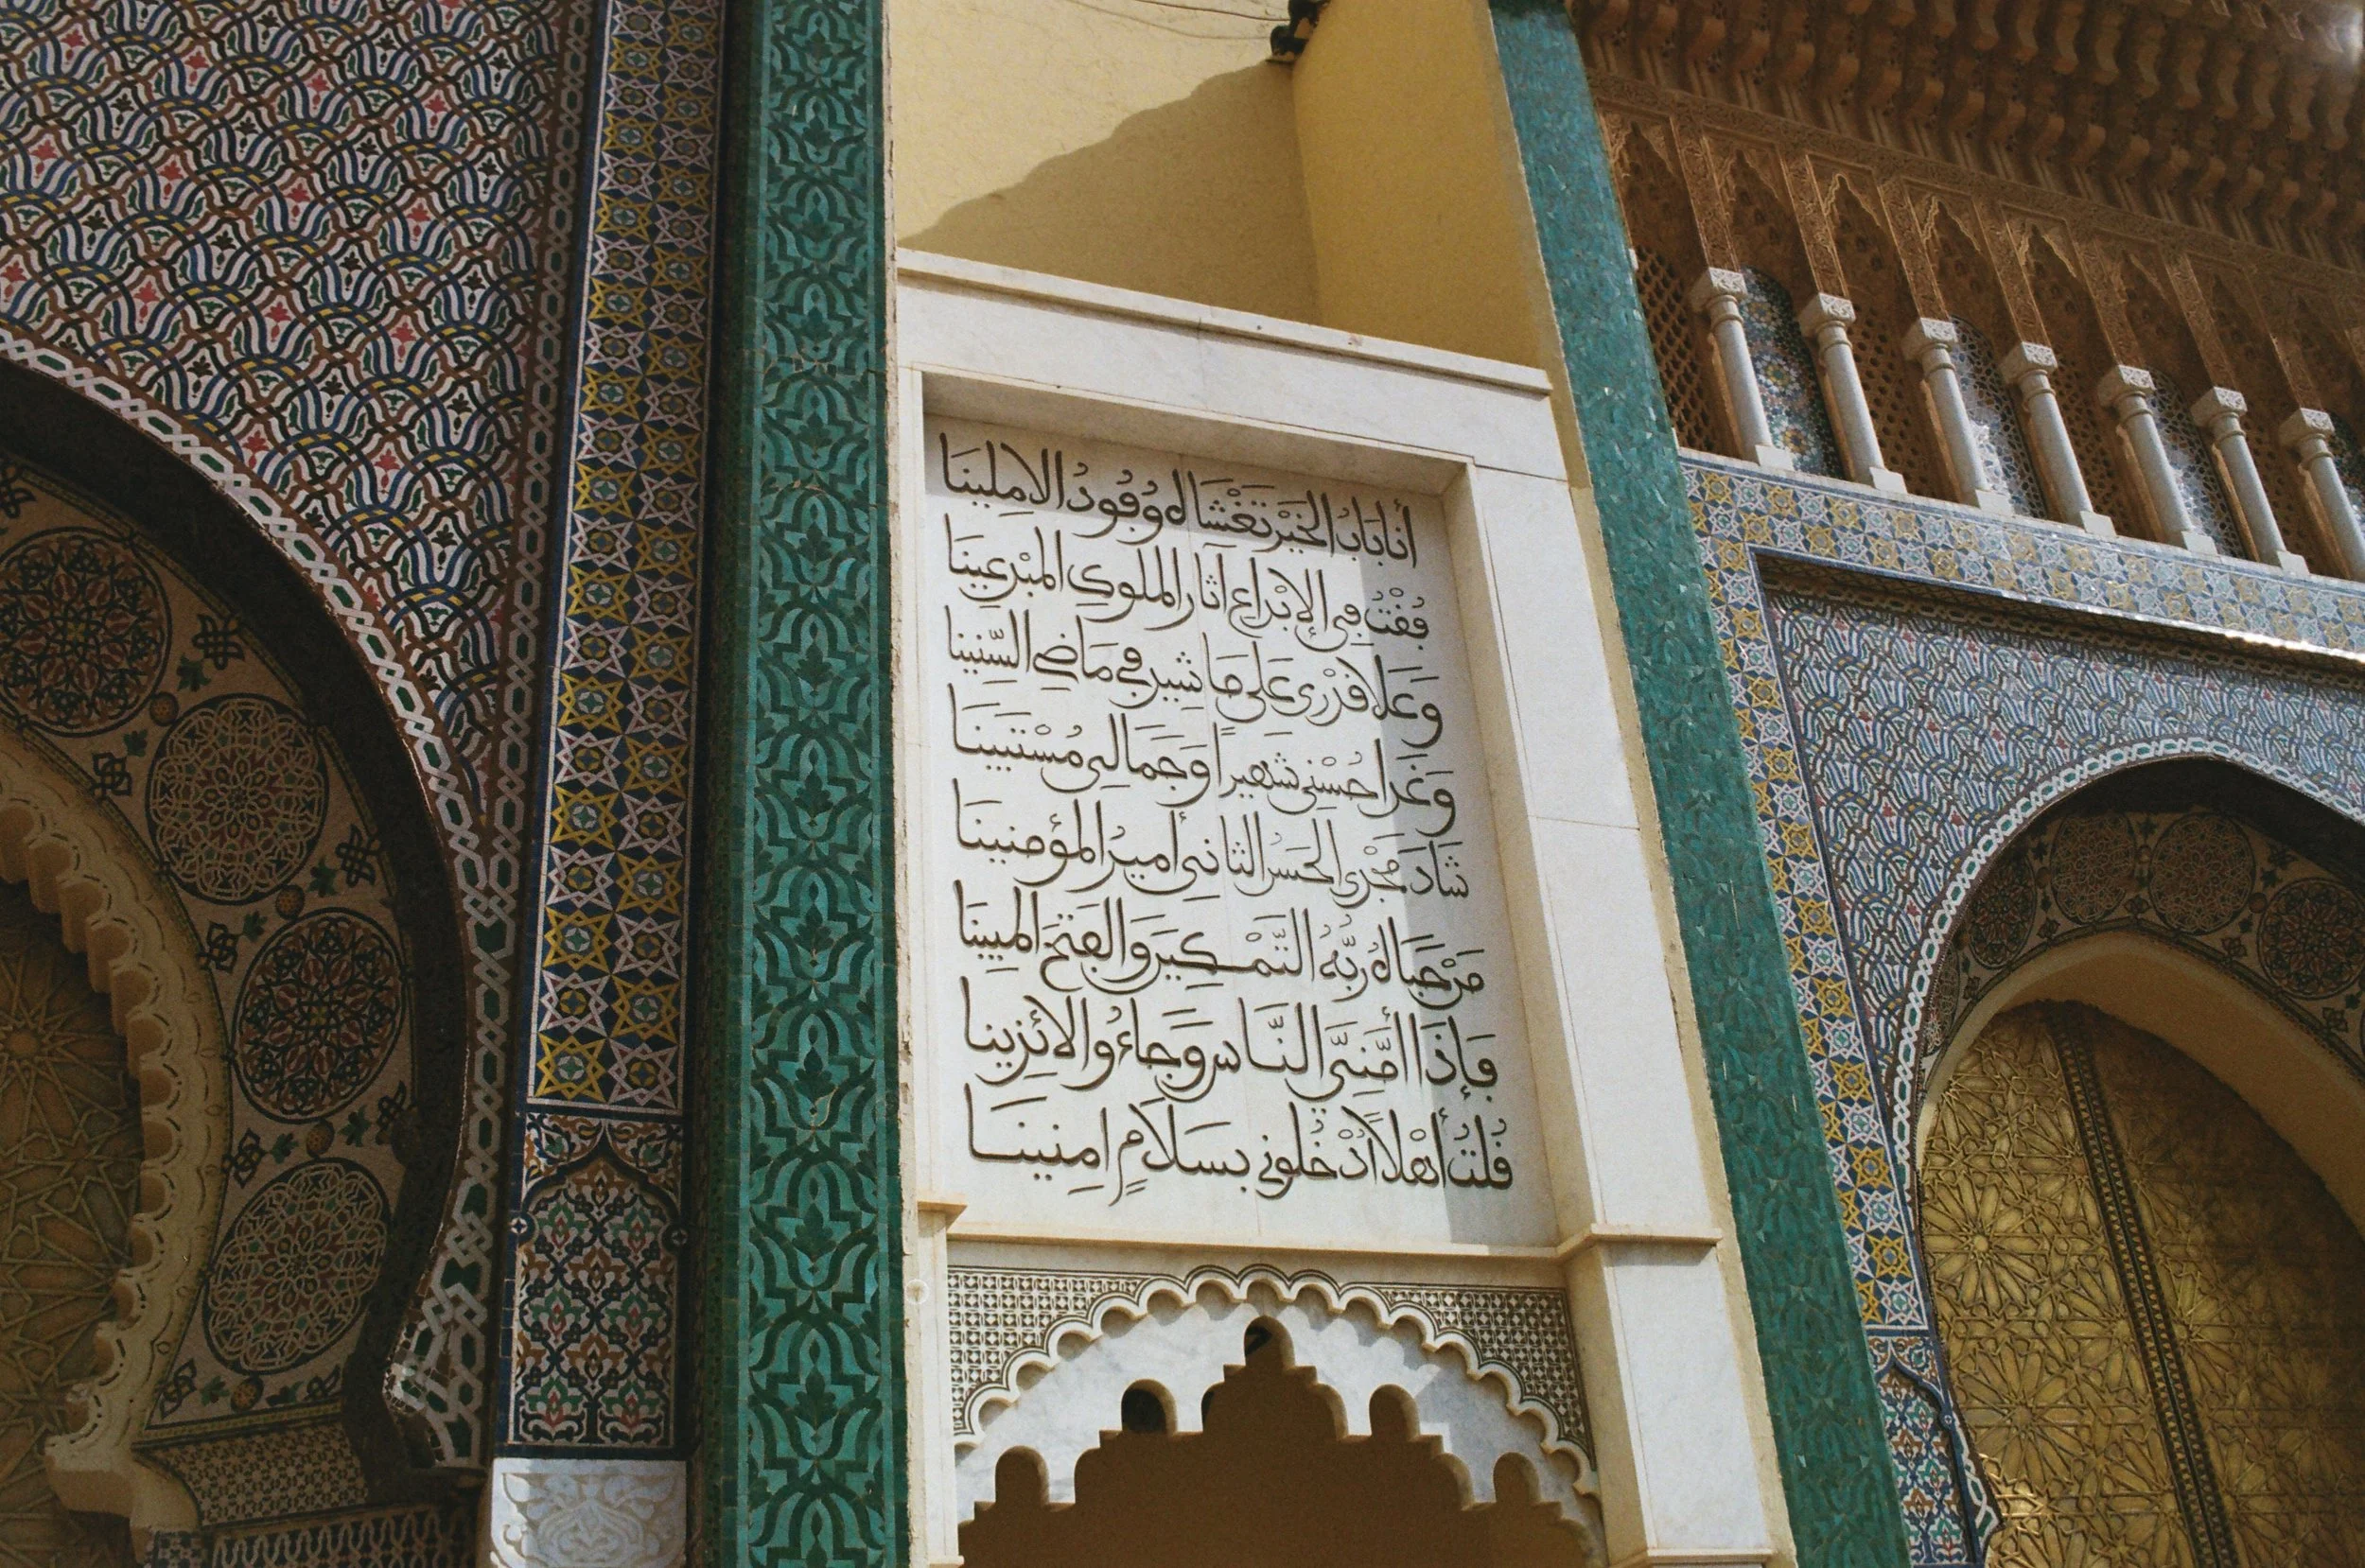 أنا بَابُ الخَيْرِ تَغْشَاهُ وُفُودُ الامِلِينَا
فُقْتُ فِي الإِبْدَاعِ آثَارَ المُلُوكِ المُبْدِعِينَا
وَعَلَا قَدْرِي عَلَى مَا شِيدَ فِي مَاضِي السِّنِينَا
وَغَدَا حُسْنِي شَهِيراً وَجَمَالِي مُسْتَبِينَا
شَادَ مَجْدِي الحَسَنُ الثانِي أَمِيرُ المُؤْمِنِينَا
مَنْ حَبَاهُ رَبُّهُ التَّمْكِينَ وَالفَتْحَ المُبِينَا
فَإِذَا أَمَّنِيَ النَّاسُ وَجَاءُوا لائِذِينَا
قُلْتُ أَهْلاً اُدْخُلُونِي بِسَلَامٍ امِنِينَا